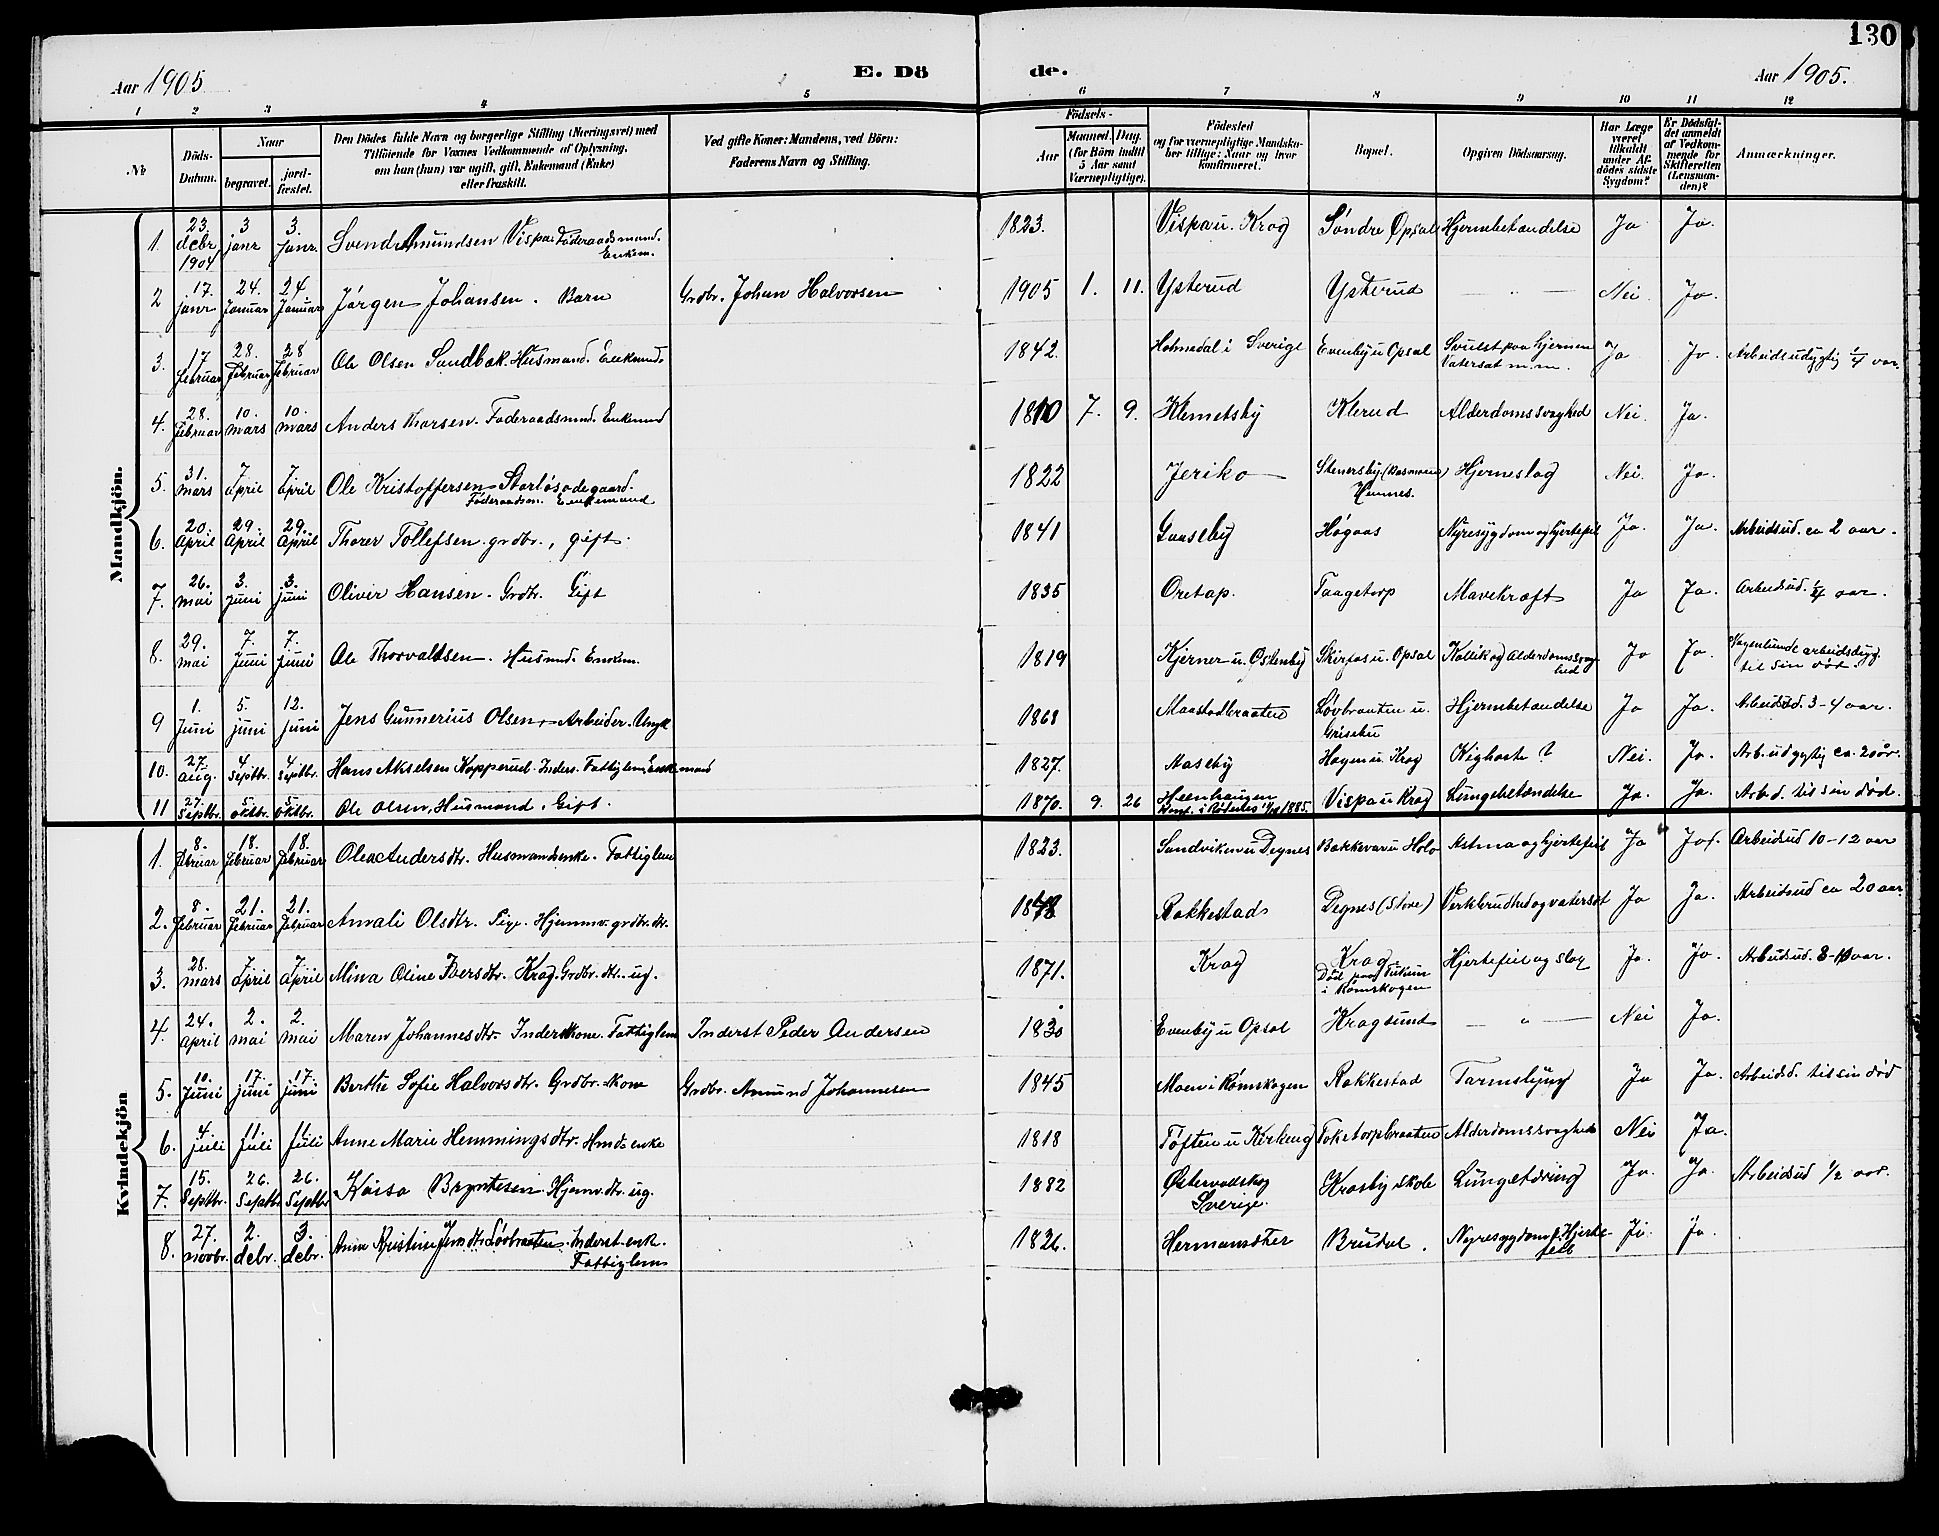 130
Aar 1905
E. Dö
de.
Aar 1905.
1 2 3 4 5 6 7 8 9 10 11 12
No
Döds-Datum.
Naar
begravet.
jord-fæstet.
Den Dödes fulde Navn og borgerlige Stilling (Næringsvei) med
Tilföiende for Voxnes Vedkommende af Oplysning,
om han (hun) var ugift, gift, Enkemand (Enke)
eller fraskilt.
Ved gifte Koner: Mandens, ved Börn:
Faderens Navn og Stilling.
Födsels-
Aar
Maaned. Dag.
(for Börn indtil
5 Aar samt
Værnepligtige).
Födested
og for værnepligtige Mandska-
ber tillige: Naar og hvor
konfirmeret.
Bopæl.
Opgiven Dödsaarsag.
Har Læge
været
tilkaldt
under Af-
dödes sidste
Sygdom?
Er Dödsfal-
det anmeldt
af Vedkom-
mende for
Skifteretten
(Lensman-
den)?
Anmærkninger.
Mandkjön.
1. 23. debr 1904 3 janr 3. janr. Svend Amundsen Vispa Føderaadsmand. Enkem. 1823. Vispa u. Krog Søndre Opsal Hjernebetændelse Ja Ja.
2 17. janr 24. Januar 24 Januar Jørgen Johansen. Barn Grdbr. Johan Halvorsen 1905 1. 11. Ysterud Ysterud — " — Nei. Ja.
3. 17 februar 28. februar 28 februar Ole Olsen Sandbæk. Husmand. Enkemd. 1842. Holmedal i Sverige Evenby u Opsal Svulst paa hjernen Vatersot m.m. Ja Ja. Arbeidsudygtig 1/4 aar.
4. 28. februar 10. mars 10. mars Anders Thorsen. Føderaadsmd. Enkemd 1810 7. 9. Klemetsby Klerud Alderdomssvaghed Nei. Ja.
5. 31. mars 7 april 7. april Ole Kristoffersen Storløsødegaard. Føderaadsm. Enkemand 1822 Jeriko Stenersby (Rasmund) Hemnes. Hjerneslag Nei. Ja.
6. 20. april 29. april 29. april Thorer Tollefsen. grdbr., gift. 1841 Gaaseby Høgaas Nyresygdom og hjertefeil Ja. Ja. Arbeidsud. ca 2 aar.
7. 26. mai 3. juni 3. juni Oliver Hansen. Grdbr. Gift 1835 Oretap. Taagetorp Mavekræft Ja Ja. Arbeidsud. 1/4 aar.
8. 29. mai 7. juni 7. juni Ole Thorvaldsen. Husmd. Enkem. 1819 Kjerner u. Østenby Skirfos u. Opsal Kolik og Alderdomssvaghed Ja Ja. arbeidsdyg. til sin død.
9 1. juni 5. juni 12. juni Jens Gunnerius Olsen. Arbeider. Ungk 1868 Maastadbraaten Løvbraaten u. Grisebu Hjernebetændelse Ja Ja. Arbeidsud. 3-4 aar.
10. 27. aug. 4 septbr. 4 septbr. Hans Akselsen Kopperud. Inders. Fattiglem, Enkemand 1827. Aaseby Hagen u. Krog Kighoste ? Nei. Ja. Arb. udygtig ca. 20 år.
11 27. septbr. 5 oktbr. 5 oktbr. Ole Olsen, Husmand. Gift. 1870. 9. 26 Konf. i Rødenes 1885. Vispa u Krog Lungebetændelse Ja. Ja. Arb.d. til sin død.
Kvindekjön
1. 8. februar 18. februar 18. februar Olea Andersdtr. Husmandsenke. Fattiglem 1823. Sandviken u Degnes Bakkevar u Holo Astma og hjertefeil Ja Ja. Arbeidsud 10-12 aar
2. 8. februar 21. februar 21. februar Amali Olsdtr. Pige. Hjemmev. grdbr. dtr. Rakkestad Degnes (Store) Verkbrudenhed og vatersot Ja Ja. Arbeidsud ca 20 aar
3. 28. mars 7 april 7 april Mina Oline Iversdtr. Krog. Grdbr. dtr. ug. 1871. Krog Krog. Død paa i Rømskogen Hjertefeil og slag Ja. Ja. Arbeidsud. 8-10 aar.
4. 24. april 2. mai 2. mai Maren Johannesdtr. Inderstkone. Fattiglem Inderst Peder Andersen 1830 Evenby u Opsal Kragsund — " — Nei Ja.
5. 10. juni 17. juni 17. juni Berthe Sofie Halvorsdtr. Grdbr. kone Grdbr. Amund Johannesen 1845 Moen i Rømskogen Rakkestad Tarmslyng Ja Ja. Arbeidsd. til sin død
6. 4 juli 11 juli 11 juli Anne Marie Hemmingsdtr. Hmds enke 1818 Toften u Kirkeng Toketorpbraaten Alderdomssvaghed Nei Ja.
7. 15. septbr. 26. septbr 26. septbr Kaisa Bryntesen. Hjemv. dtr. ug. 1882 Østervaldskog Sverige. Krosby skole Lungetæring Ja. Ja. Arbeidsud 1/2 aar.
8. 27. novbr. 2. debr. 3. debr. Anne Kristine Jensdtr. Løvbraaten. Inderst enk. Fattiglem 1826. Hermansther Brudal. Nyresygdom & Hjertefeil Ja. Ja.